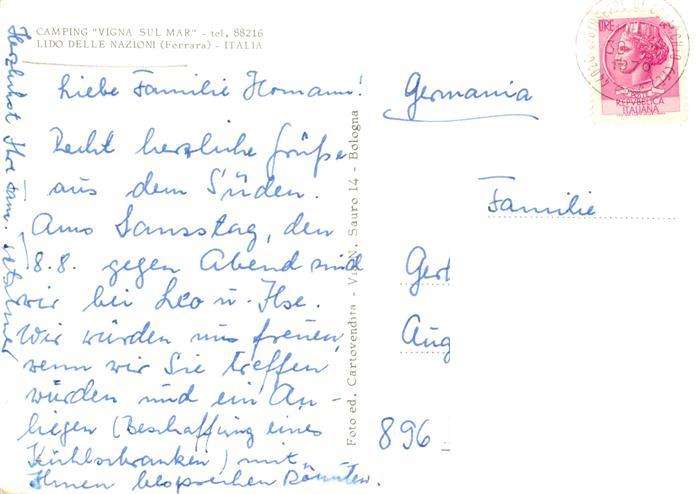 CAMPING "VIGNA SUL MAR" - tel. 88216
LIDO DELLE NAZIONI (Ferrara) - ITALIA
Liebe Familie Homann!
Recht herzliche Grüße
aus dem Süden.
Am Samstag, den
8.8. gegen Abend sind
wir bei Leo u. Ilse.
Wir würden uns freuen,
wenn wir Sie treffen
würden und ein An-
liegen (Beschaffung eines
Kühlschrankes) mit
Ihnen besprechen könnten.
Herzlichst Ihre Fam.
Foto ed. Cartovendita - Via N. Sauro 14 - Bologna
Germania
Familie
Gert
Aug
896
LIRE
POSTE
REPVBBLICA
ITALIANA